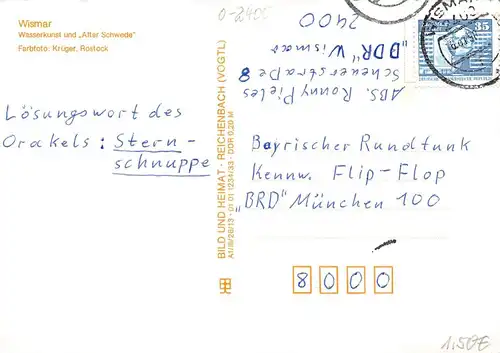 Wismar
Wasserkunst und „Alter Schwede"
Farbfoto: Krüger, Rostock
0-2400
2400
"DDR" Wismar
Scheuerstraße 8
ABS. Ronny Pieles
35
Lösungswort des
Orakels: Stern-
schnuppe
BILD UND HEIMAT · REICHENBACH (VOGTL)
A1/III/26/13 · 01 01 1234/33 · DDR 0,20 M
Bayerischer Rundfunk
Kennw. Flip-Flop
„BRD" München 100
8000
1,50€